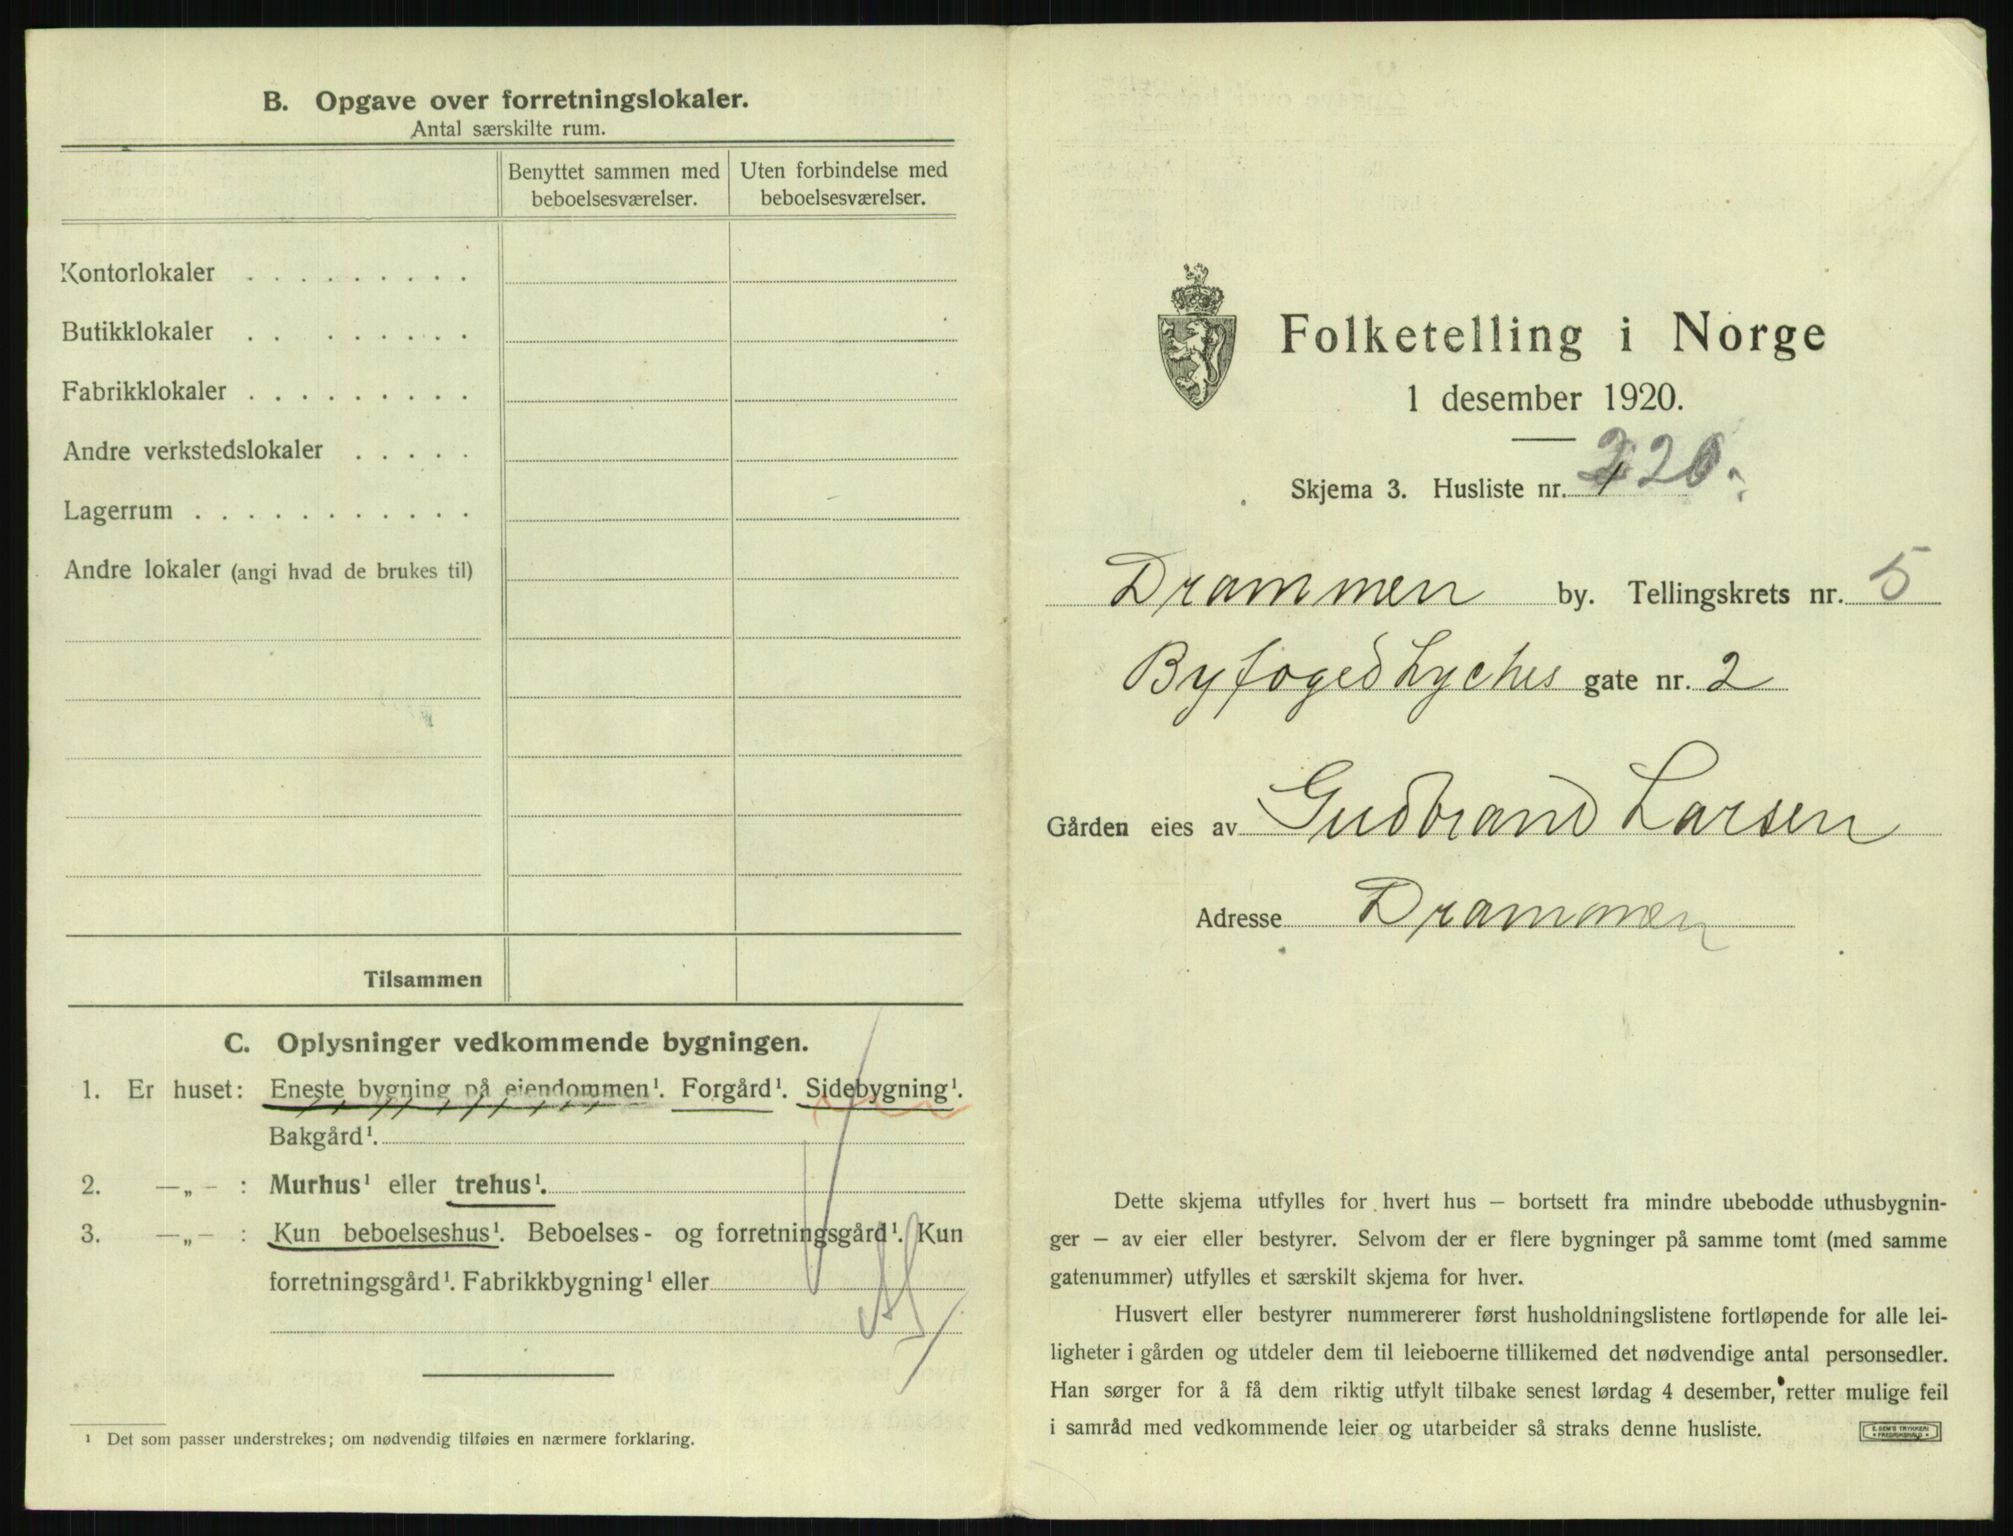 B. Opgave over forretningslokaler.
Antal særskilte rum.
Benyttet sammen med beboelsesværelser.
Uten forbindelse med beboelsesværelser.
Kontorlokaler . . . . . . . . .
Butikklokaler . . . . . . . .
Fabrikklokaler . . . . . . . . .
Andre verkstedslokaler . . . . .
Lagerrum . . . . . . . . . . .
Andre lokaler (angi hvad de brukes til)
Tilsammen
C. Oplysninger vedkommende bygningen.
1. Er huset: Eneste bygning på eiendommen¹. Forgård¹. Sidebygning¹.
Bakgård¹.
2. —„— : Murhus¹ eller trehus¹.
3. —„— : Kun beboelseshus¹. Beboelses- og forretningsgård¹. Kun
forretningsgård¹. Fabrikkbygning¹ eller
¹ Det som passer understrekes; om nødvendig tilføies en nærmere forklaring.
Folketelling i Norge
1 desember 1920.
Skjema 3. Husliste nr.
Drammen by. Tellingskrets nr. 5
Byfoged Lyches gate nr. 2
Gården eies av Gudbrand Larsen
Adresse Drammen
Dette skjema utfylles for hvert hus — bortsett fra mindre ubebodde uthusbygnin-
ger — av eier eller bestyrer. Selvom der er flere bygninger på samme tomt (med samme
gatenummer) utfylles et særskilt skjema for hver.
Husvert eller bestyrer nummererer først husholdningslistene fortløpende for alle lei-
ligheter i gården og utdeler dem til leieboerne tillikemed det nødvendige antal personsedler.
Han sørger for å få dem riktig utfylt tilbake senest lørdag 4 desember, retter mulige feil
i samråd med vedkommende leier og utarbeider så straks denne husliste.
E. SEM'S TRYKKERI
FREDRIKSHALD